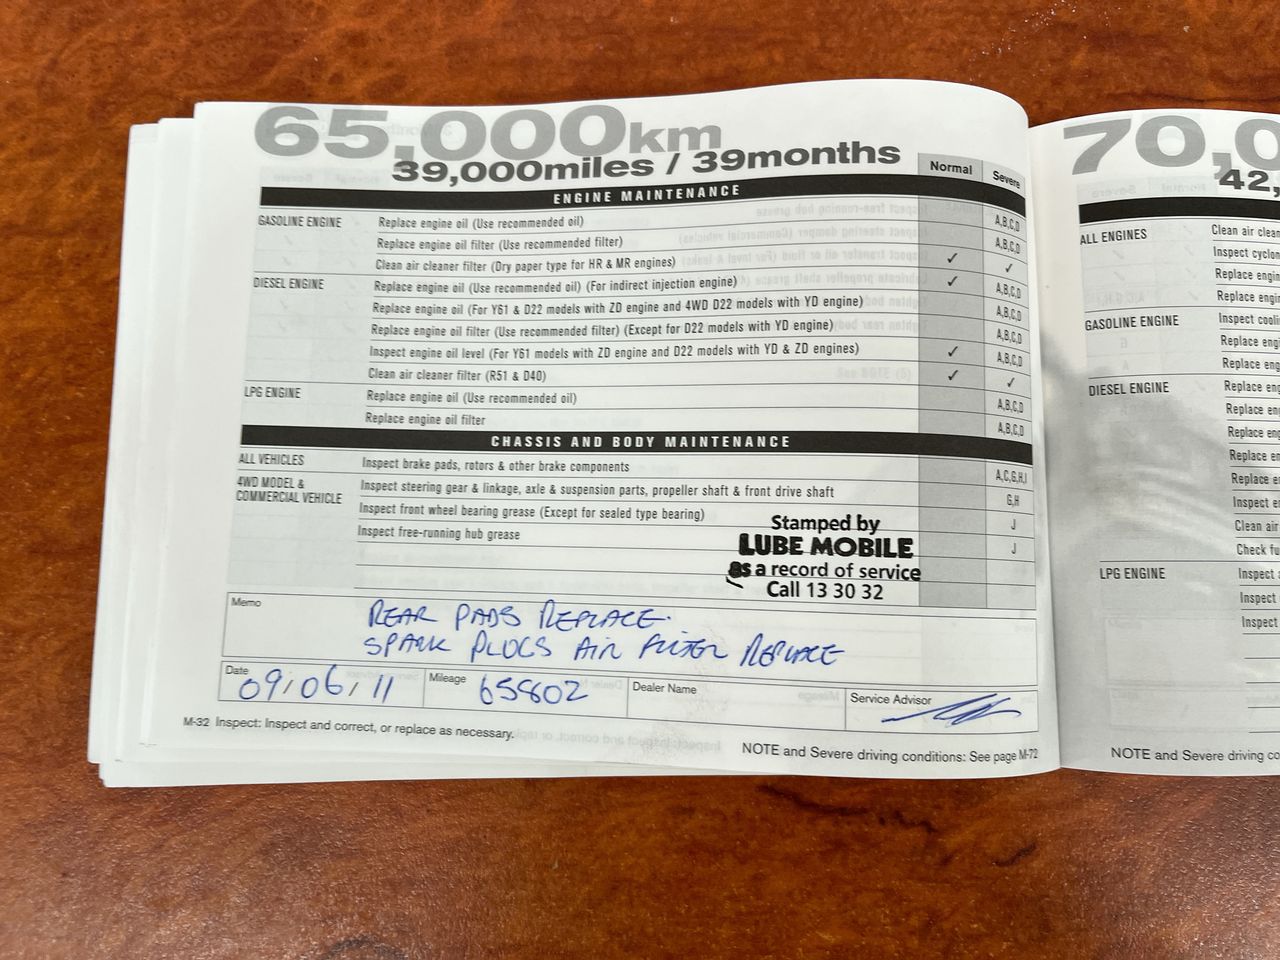 65,000km
39,000miles / 39months
Normal Severe
ENGINE MAINTENANCE
GASOLINE ENGINE Replace engine oil (Use recommended oil) A,B,C,D
Replace engine oil filter (Use recommended filter) A,B,C,D
Clean air cleaner filter (Dry paper type for HR & MR engines) ✓ ✓
DIESEL ENGINE Replace engine oil (Use recommended oil) (For indirect injection engine) ✓ A,B,C,D
Replace engine oil (For Y61 & D22 models with ZD engine and 4WD D22 models with YD engine) A,B,C,D
Replace engine oil filter (Use recommended filter) (Except for D22 models with YD engine) A,B,C,D
Inspect engine oil level (For Y61 models with ZD engine and D22 models with YD & ZD engines) ✓ A,B,C,D
Clean air cleaner filter (R51 & D40) ✓ ✓
LPG ENGINE Replace engine oil (Use recommended oil) A,B,C,D
Replace engine oil filter A,B,C,D
CHASSIS AND BODY MAINTENANCE
ALL VEHICLES Inspect brake pads, rotors & other brake components A,C,G,H,I
4WD MODEL & COMMERCIAL VEHICLE Inspect steering gear & linkage, axle & suspension parts, propeller shaft & front drive shaft G,H
Inspect front wheel bearing grease (Except for sealed type bearing) J
Inspect free-running hub grease J
Stamped by
LUBE MOBILE
as a record of service
Call 13 30 32
Memo
REAR PADS REPLACE.
SPARK PLUGS AIR FILTER REPLACE
Date 09/06/11 Mileage 65802 Dealer Name Service Advisor
M-32 Inspect: Inspect and correct, or replace as necessary.
NOTE and Severe driving conditions: See page M-72
70,0
42,
ALL ENGINES Clean air clean
Inspect cyclon
Replace engin
Replace engin
GASOLINE ENGINE Inspect cooli
Replace engi
Replace eng
DIESEL ENGINE Replace en
Replace en
Replace en
Replace en
Replace e
Inspect e
Clean air
Check fu
LPG ENGINE Inspect
Inspect
Inspect
NOTE and Severe driving co